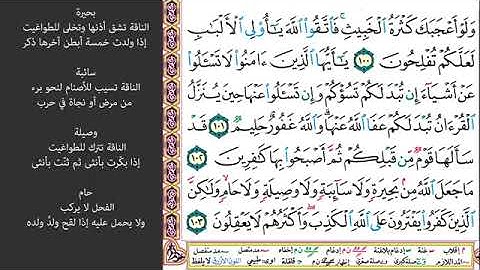 وَلَوْ أَعْجَبَكَ كَثْرَةُ الْخَبِيثِ ۚ فَاتَّقُوا اللَّهَ يَا أُولِي الْأَلْبَابِ
لَعَلَّكُمْ تُفْلِحُونَ ١٠٠ يَا أَيُّهَا الَّذِينَ آمَنُوا لَا تَسْأَلُوا
عَنْ أَشْيَاءَ إِن تُبْدَ لَكُمْ تَسُؤْكُمْ وَإِن تَسْأَلُوا عَنْهَا حِينَ يُنَزَّلُ
الْقُرْآنُ تُبْدَ لَكُمْ عَفَا اللَّهُ عَنْهَا ۗ وَاللَّهُ غَفُورٌ حَلِيمٌ ١٠١ قَدْ
سَأَلَهَا قَوْمٌ مِّن قَبْلِكُمْ ثُمَّ أَصْبَحُوا بِهَا كَافِرِينَ ١٠٢
مَا جَعَلَ اللَّهُ مِن بَحِيرَةٍ وَلَا سَائِبَةٍ وَلَا وَصِيلَةٍ وَلَا حَامٍ ۙ وَلَٰكِنَّ
الَّذِينَ كَفَرُوا يَفْتَرُونَ عَلَى اللَّهِ الْكَذِبَ ۖ وَأَكْثَرُهُمْ لَا يَعْقِلُونَ ١٠٣
بحيرة
الناقة تشق أذنها وتخلى للطواغيت
إذا ولدت خمسة أبطن آخرها ذكر
سائبة
الناقة تسيب للأصنام لنحو برء
من مرض أو نجاة في حرب
وصيلة
الناقة تترك للطواغيت
إذا بكّرت بأنثى ثم ثنّت بأنثى
حام
الفحل لا يركب
ولا يحمل عليه إذا لقح ولدُ ولده